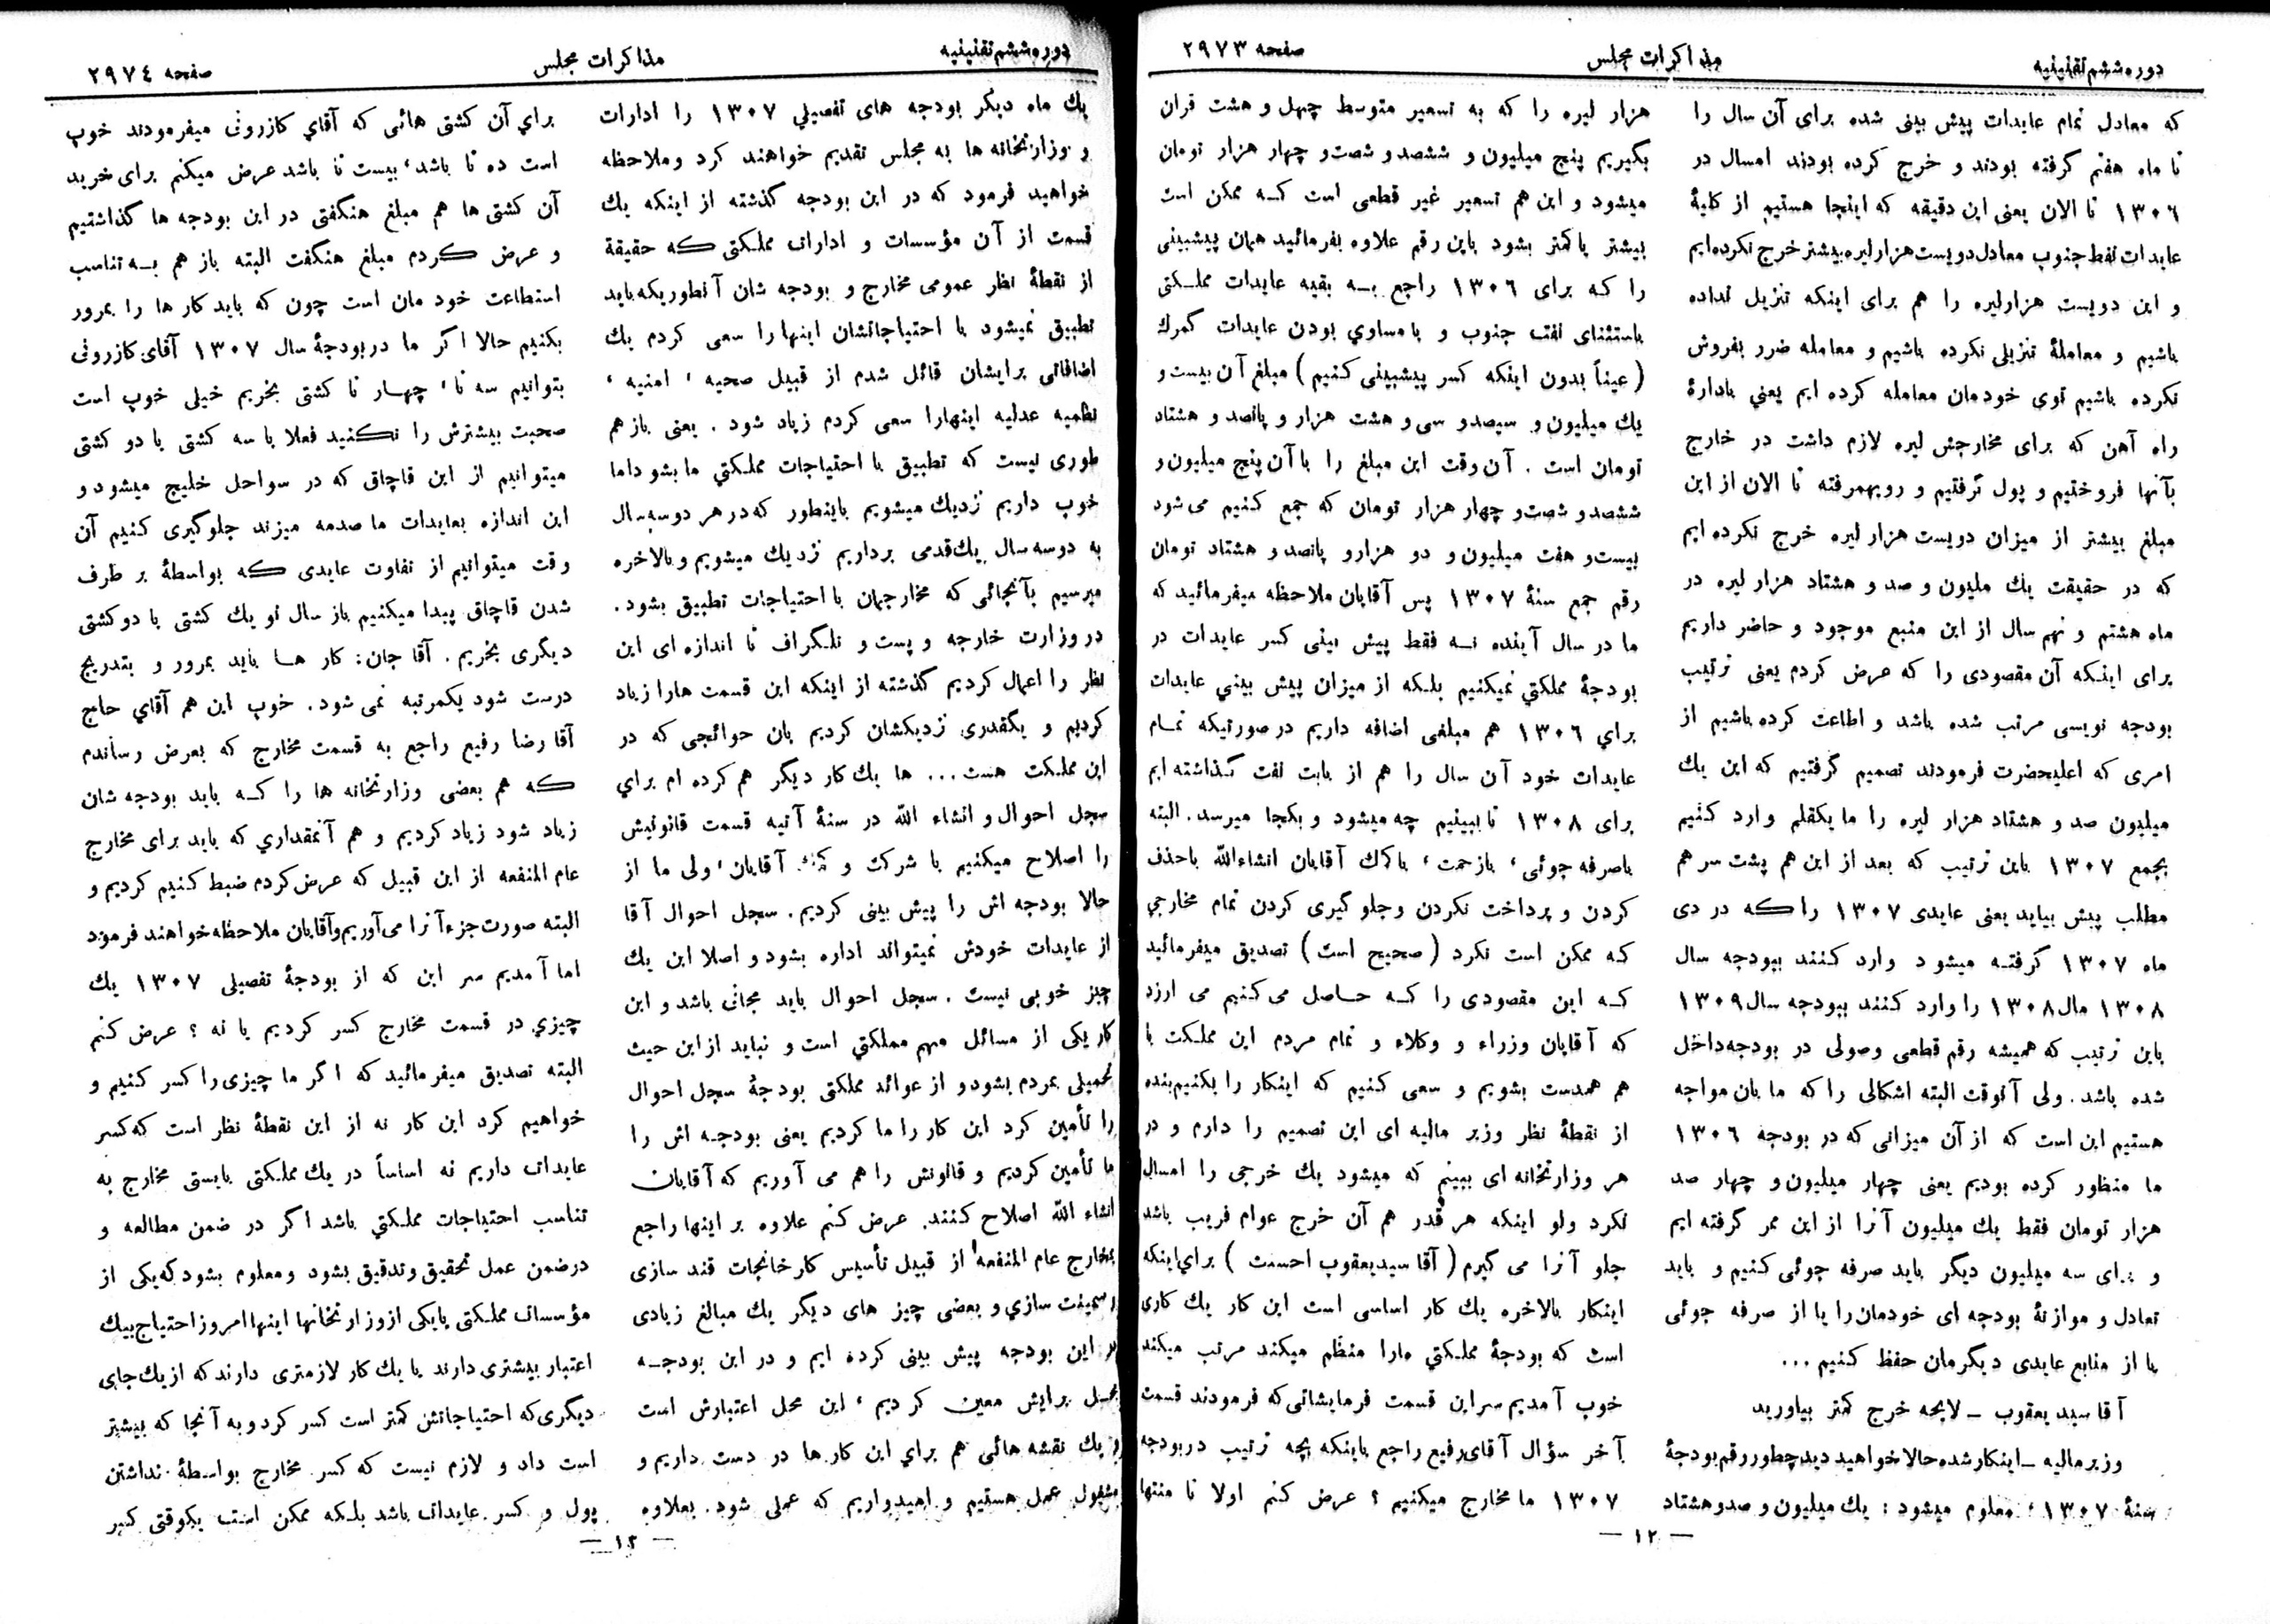 دوره ششم تقنینیه
مذاکرات مجلس
صفحه ۲۹۷۳
که معادل تمام عایدات پیش بینی شده برای آن سال را
تا ماه هفتم گرفته بودند و خرج کرده بودند امسال در
۱۳۰۶ تا الان یعنی این دقیقه که اینجا هستیم از کلیهٔ
عایدات نفط جنوب معادل دویست هزار لیره بیشتر خرج نکرده‌ایم
و این دویست هزار لیره را هم برای اینکه تنزیل نداده
باشیم و معاملهٔ تنزیلی نکرده باشیم و معامله ضرر بفروش
نکرده باشیم توی خودمان معامله کرده ایم یعنی بادارهٔ
راه آهن که برای مخارجش لیره لازم داشت در خارج
بآنها فروختیم و پول گرفتیم و رویهمرفته تا الان از این
مبلغ بیشتر از میزان دویست هزار لیره خرج نکرده ایم
که در حقیقت یك ملیون و صد و هشتاد هزار لیره در
ماه هشتم و نهم سال از این منبع موجود و حاضر داریم
برای اینکه آن مقصودی را که عرض کردم یعنی ترتیب
بودجه نویسی مرتب شده باشد و اطاعت کرده باشیم از
امری که اعلیحضرت فرمودند تصمیم گرفتیم که این یك
میلیون صد و هشتاد هزار لیره را ما یکقلم وارد کنیم
بجمع ۱۳۰۷ باین ترتیب که بعد از این هم پشت سر هم
مطلب پیش بیاید یعنی عایدی ۱۳۰۷ را که در دی
ماه ۱۳۰۷ گرفته میشود وارد کنند ببودجه سال
۱۳۰۸ مال ۱۳۰۸ را وارد کنند ببودجه سال ۱۳۰۹
باین ترتیب که همیشه رقم قطعی وصولی در بودجه داخل
شده باشد . ولی آنوقت البته اشکالی را که ما بان مواجه
هستیم این است که از آن میزانی که در بودجه ۱۳۰۶
ما منظور کرده بودیم یعنی چهار میلیون و چهار صد
هزار تومان فقط یك میلیون آنرا از این ممر گرفته ایم
و برای سه میلیون دیگر باید صرفه جوئی کنیم و باید
تعادل و موازنهٔ بودجه ای خودمان را یا از صرفه جوئی
یا از منابع عایدی دیگرمان حفظ کنیم ...
آقا سید یعقوب ـ لایحه خرج کمتر بیاورید
وزیر مالیه ـ اینکار شده حالا خواهید دید چطور رقم بودجهٔ
سنهٔ ۱۳۰۷ ، معلوم میشود : یك میلیون و صد و هشتاد
هزار لیره را که به تسعیر متوسط چهل و هشت قران
بگیریم پنج میلیون و ششصد و شصت و چهار هزار تومان
میشود و این هم تسعیر غیر قطعی است که ممکن است
بیشتر یا کمتر بشود باین رقم علاوه بفرمائید همان پیشبینی
را که برای ۱۳۰۶ راجع به بقیه عایدات مملکتی
باستثنای نفت جنوب و با مساوی بودن عایدات گمرك
( عیناً بدون اینکه کسر پیشبینی کنیم ) مبلغ آن بیست و
یك میلیون و سیصد و سی و هشت هزار و پانصد و هشتاد
تومان است . آن وقت این مبلغ را با آن پنج میلیون و
ششصد و شصت و چهار هزار تومان که جمع کنیم می شود
بیست و هفت میلیون و دو هزار و پانصد و هشتاد تومان
رقم جمع سنهٔ ۱۳۰۷ پس آقایان ملاحظه میفرمائید که
ما در سال آینده نه فقط پیش بینی کسر عایدات در
بودجهٔ مملکتی نمیکنیم بلکه از میزان پیش بینی عایدات
برای ۱۳۰۶ هم مبلغی اضافه داریم در صورتیکه تمام
عایدات خود آن سال را هم از بابت نفت گذاشته ایم
برای ۱۳۰۸ تا ببینیم چه میشود و بکجا میرسد . البته
باصرفه جوئی ، بازحمت ، با کمك آقایان انشاءالله باحذف
کردن و پرداخت نکردن و جلوگیری کردن تمام مخارجی
که ممکن است نکرد ( صحیح است ) تصدیق میفرمائید
که این مقصودی را که حاصل می کنیم می ارزد
که آقایان وزراء و وکلاء و تمام مردم این مملکت با
هم همدست بشویم و سعی کنیم که اینکار را بکنیم بنده
از نقطهٔ نظر وزیر مالیه ای این تصمیم را دارم و در
هر وزارتخانه ای ببینم که میشود یك خرجی را امسال
نکرد ولو اینکه هر قدر هم آن خرج عوام فریب باشد
جلو آنرا می گیرم ( آقا سید یعقوب احسنت ) برای اینکه
اینکار بالاخره یك کار اساسی است این کار یك کاری
است که بودجهٔ مملکتی مارا منظم میکند مرتب میکند
خوب آمدیم سر این قسمت فرمایشاتی که فرمودند قسمت
آخر سؤال آقای رفیع راجع باینکه بچه ترتیب در بودجه
۱۳۰۷ ما مخارج میکنیم ؟ عرض کنم اولا تا منتها
— ۱۲ —
دوره ششم تقنینیه
مذاکرات مجلس
صفحه ۲۹۷٤
یك ماه دیگر بودجه های تفصیلی ۱۳۰۷ را ادارات
و وزارتخانه ها به مجلس تقدیم خواهند کرد و ملاحظه
خواهید فرمود که در این بودجه گذشته از اینکه یك
قسمت از آن مؤسسات و ادارات مملکتی که حقیقة
از نقطهٔ نظر عمومی مخارج و بودجه شان آنطوریکه باید
تطبیق نمیشود با احتیاجاتشان اینها را سعی کردم یك
اضافاتی برایشان قائل شدم از قبیل صحیه ، امنیه ،
نظمیه عدلیه اینهارا سعی کردم زیاد شود . یعنی باز هم
طوری نیست که تطبیق با احتیاجات مملکتی ما بشود اما
خوب داریم نزدیك میشویم باینطور که در هر دو سه سال
به دو سه سال یك قدمی برداریم نزدیك میشویم و بالاخره
میرسیم بآنجائی که مخارجمان با احتیاجات تطبیق بشود .
در وزارت خارجه و پست و تلگراف تا اندازه ای این
نظر را اعمال کردیم گذشته از اینکه این قسمت هارا زیاد
کردیم و یکقدری نزدیکشان کردیم بان حوائجی که در
این مملکت هست ... ها یك کار دیگر هم کرده ام برای
سجل احوال و انشاء الله در سنهٔ آتیه قسمت قانونیش
را اصلاح میکنیم با شرکت و کمك آقایان ، ولی ما از
حالا بودجه اش را پیش بینی کردیم . سجل احوال آقا
از عایدات خودش نمیتواند اداره بشود و اصلا این یك
چیز خوبی نیست . سجل احوال باید مجانی باشد و این
کار یکی از مسائل مهم مملکتی است و نباید از این حیث
تحمیلی بمردم بشود و از عوائد مملکتی بودجهٔ سجل احوال
را تأمین کرد این کار را ما کردیم یعنی بودجه اش را
ما تأمین کردیم و قانونش را هم می آوریم که آقایان
انشاء الله اصلاح کنند . عرض کنم علاوه بر اینها راجع
بمخارج عام المنفعه از قبیل تأسیس کارخانجات قند سازی
سمنت سازی و بعضی چیز های دیگر یك مبالغ زیادی
در این بودجه پیش بینی کرده ایم و در این بودجه
محل برایش معین کردیم ، این محل اعتبارش است
و یك نقشه هائی هم برای این کار ها در دست داریم و
مشغول عمل هستیم و امیدواریم که عملی شود . بعلاوه
برای آن کشتی هائی که آقای کازرونی میفرمودند خوب
است ده تا باشد ، بیست تا باشد عرض میکنم برای خرید
آن کشتی ها هم مبلغ هنگفتی در این بودجه ها گذاشتیم
و عرض کردم مبلغ هنگفت البته باز هم به تناسب
استطاعت خود مان است چون که باید کار ها را بمرور
بکنیم حالا اگر ما در بودجهٔ سال ۱۳۰۷ آقای کازرونی
بتوانیم سه تا ، چهار تا کشتی بخریم خیلی خوب است
صحبت بیشترش را نکنید فعلا با سه کشتی یا دو کشتی
میتوانیم از این قاچاق که در سواحل خلیج میشود و
این اندازه بعایدات ما صدمه میزند جلوگیری کنیم آن
وقت میتوانیم از تفاوت عایدی که بواسطهٔ بر طرف
شدن قاچاق پیدا میکنیم باز سال نو یك کشتی یا دو کشتی
دیگری بخریم . آقا جان : کار ها باید بمرور و بتدریج
درست شود یکمرتبه نمی شود . خوب این هم آقای حاج
آقا رضا رفیع راجع به قسمت مخارج که بعرض رساندم
که هم بعضی وزارتخانه ها را که باید بودجه شان
زیاد شود زیاد کردیم و هم آنمقداری که باید برای مخارج
عام المنفعه از این قبیل که عرض کردم ضبط کنیم کردیم و
البته صورت جزء آنرا می آوریم و آقایان ملاحظه خواهند فرمود
اما آمدیم سر این که از بودجهٔ تفصیلی ۱۳۰۷ یك
چیزی در قسمت مخارج کسر کردیم یا نه ؟ عرض کنم
البته تصدیق میفرمائید که اگر ما چیزی را کسر کنیم و
خواهیم کرد این کار نه از این نقطهٔ نظر است که کسر
عایدات داریم نه اساساً در یك مملکتی بایستی مخارج به
تناسب احتیاجات مملکتی باشد اگر در ضمن مطالعه و
در ضمن عمل تحقیق و تدقیق بشود و معلوم بشود که یکی از
مؤسسات مملکتی یا یکی از وزارتخانها اینها امروز احتیاج بیك
اعتبار بیشتری دارند یا یك کار لازمتری دارند که از یك جای
دیگری که احتیاجاتش کمتر است کسر کرد و به آنجا که بیشتر
است داد و لازم نیست که کسر مخارج بواسطهٔ نداشتن
پول و کسر عایدات باشد بلکه ممکن است یکوقتی کسر
— ۱۳ —